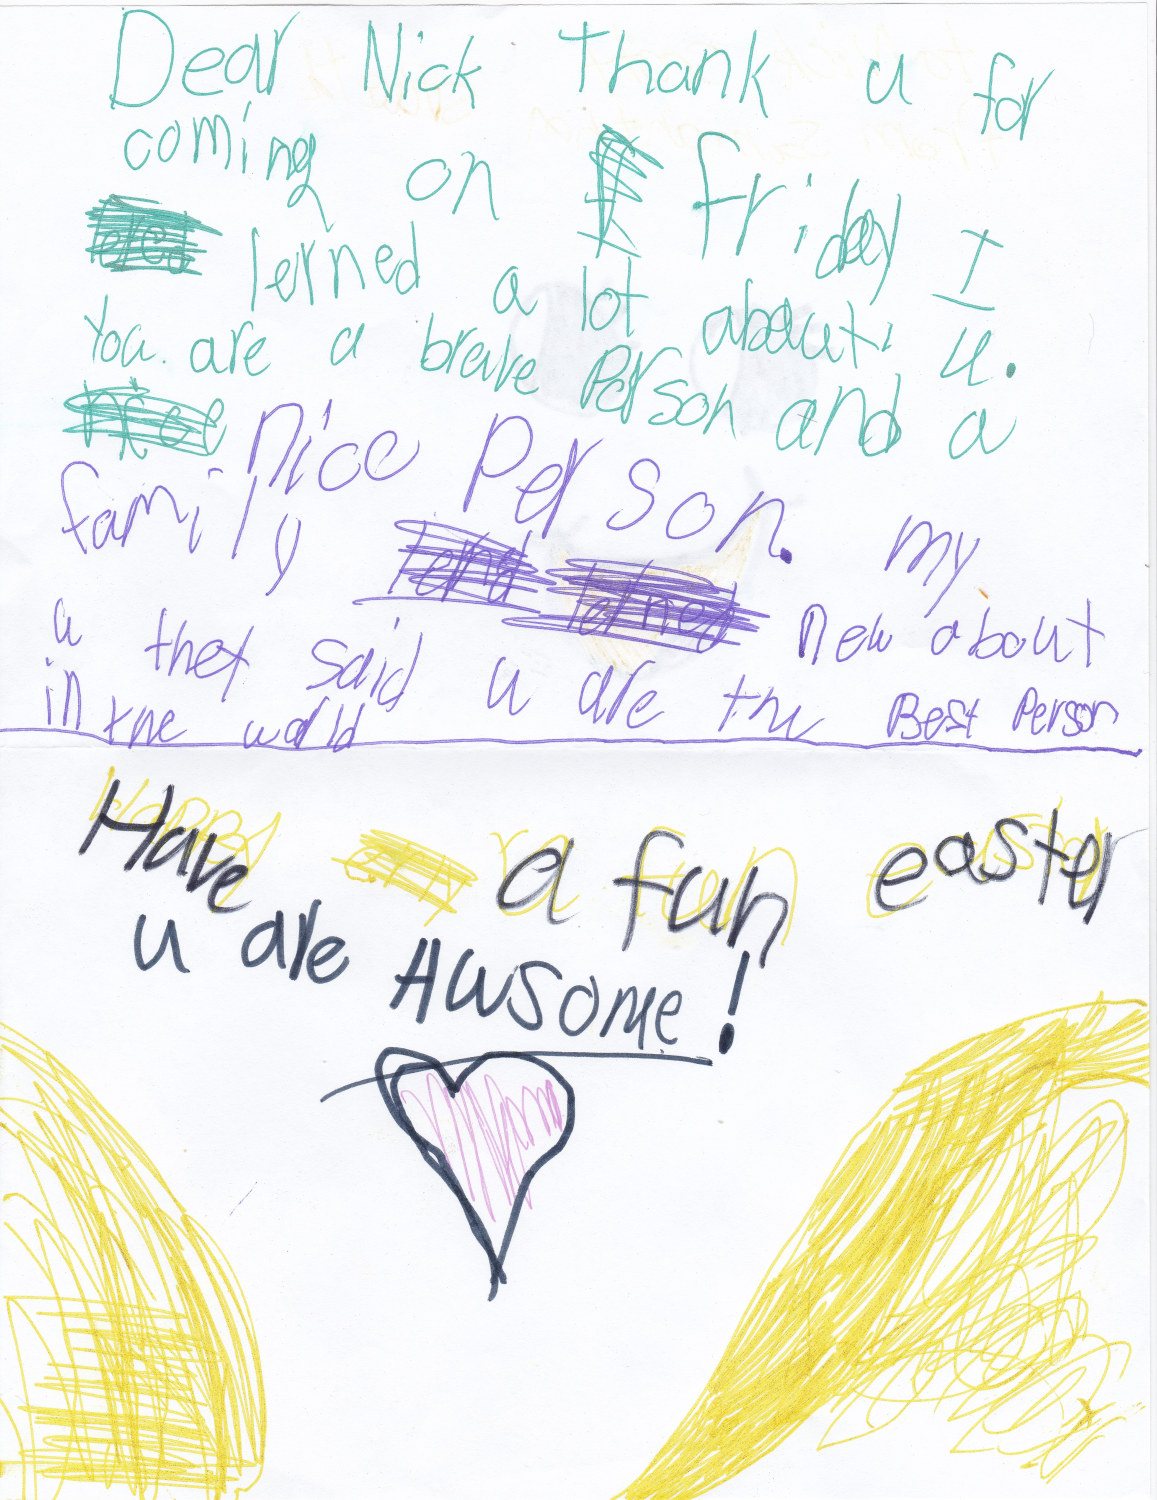 Dear Nick Thank u for
coming on friday I
lerned a lot about u.
You are a brave Person and a
nice Person. my
family new about
u they said u are the Best Person
in the world
Have a fun easter
u are Awsome!